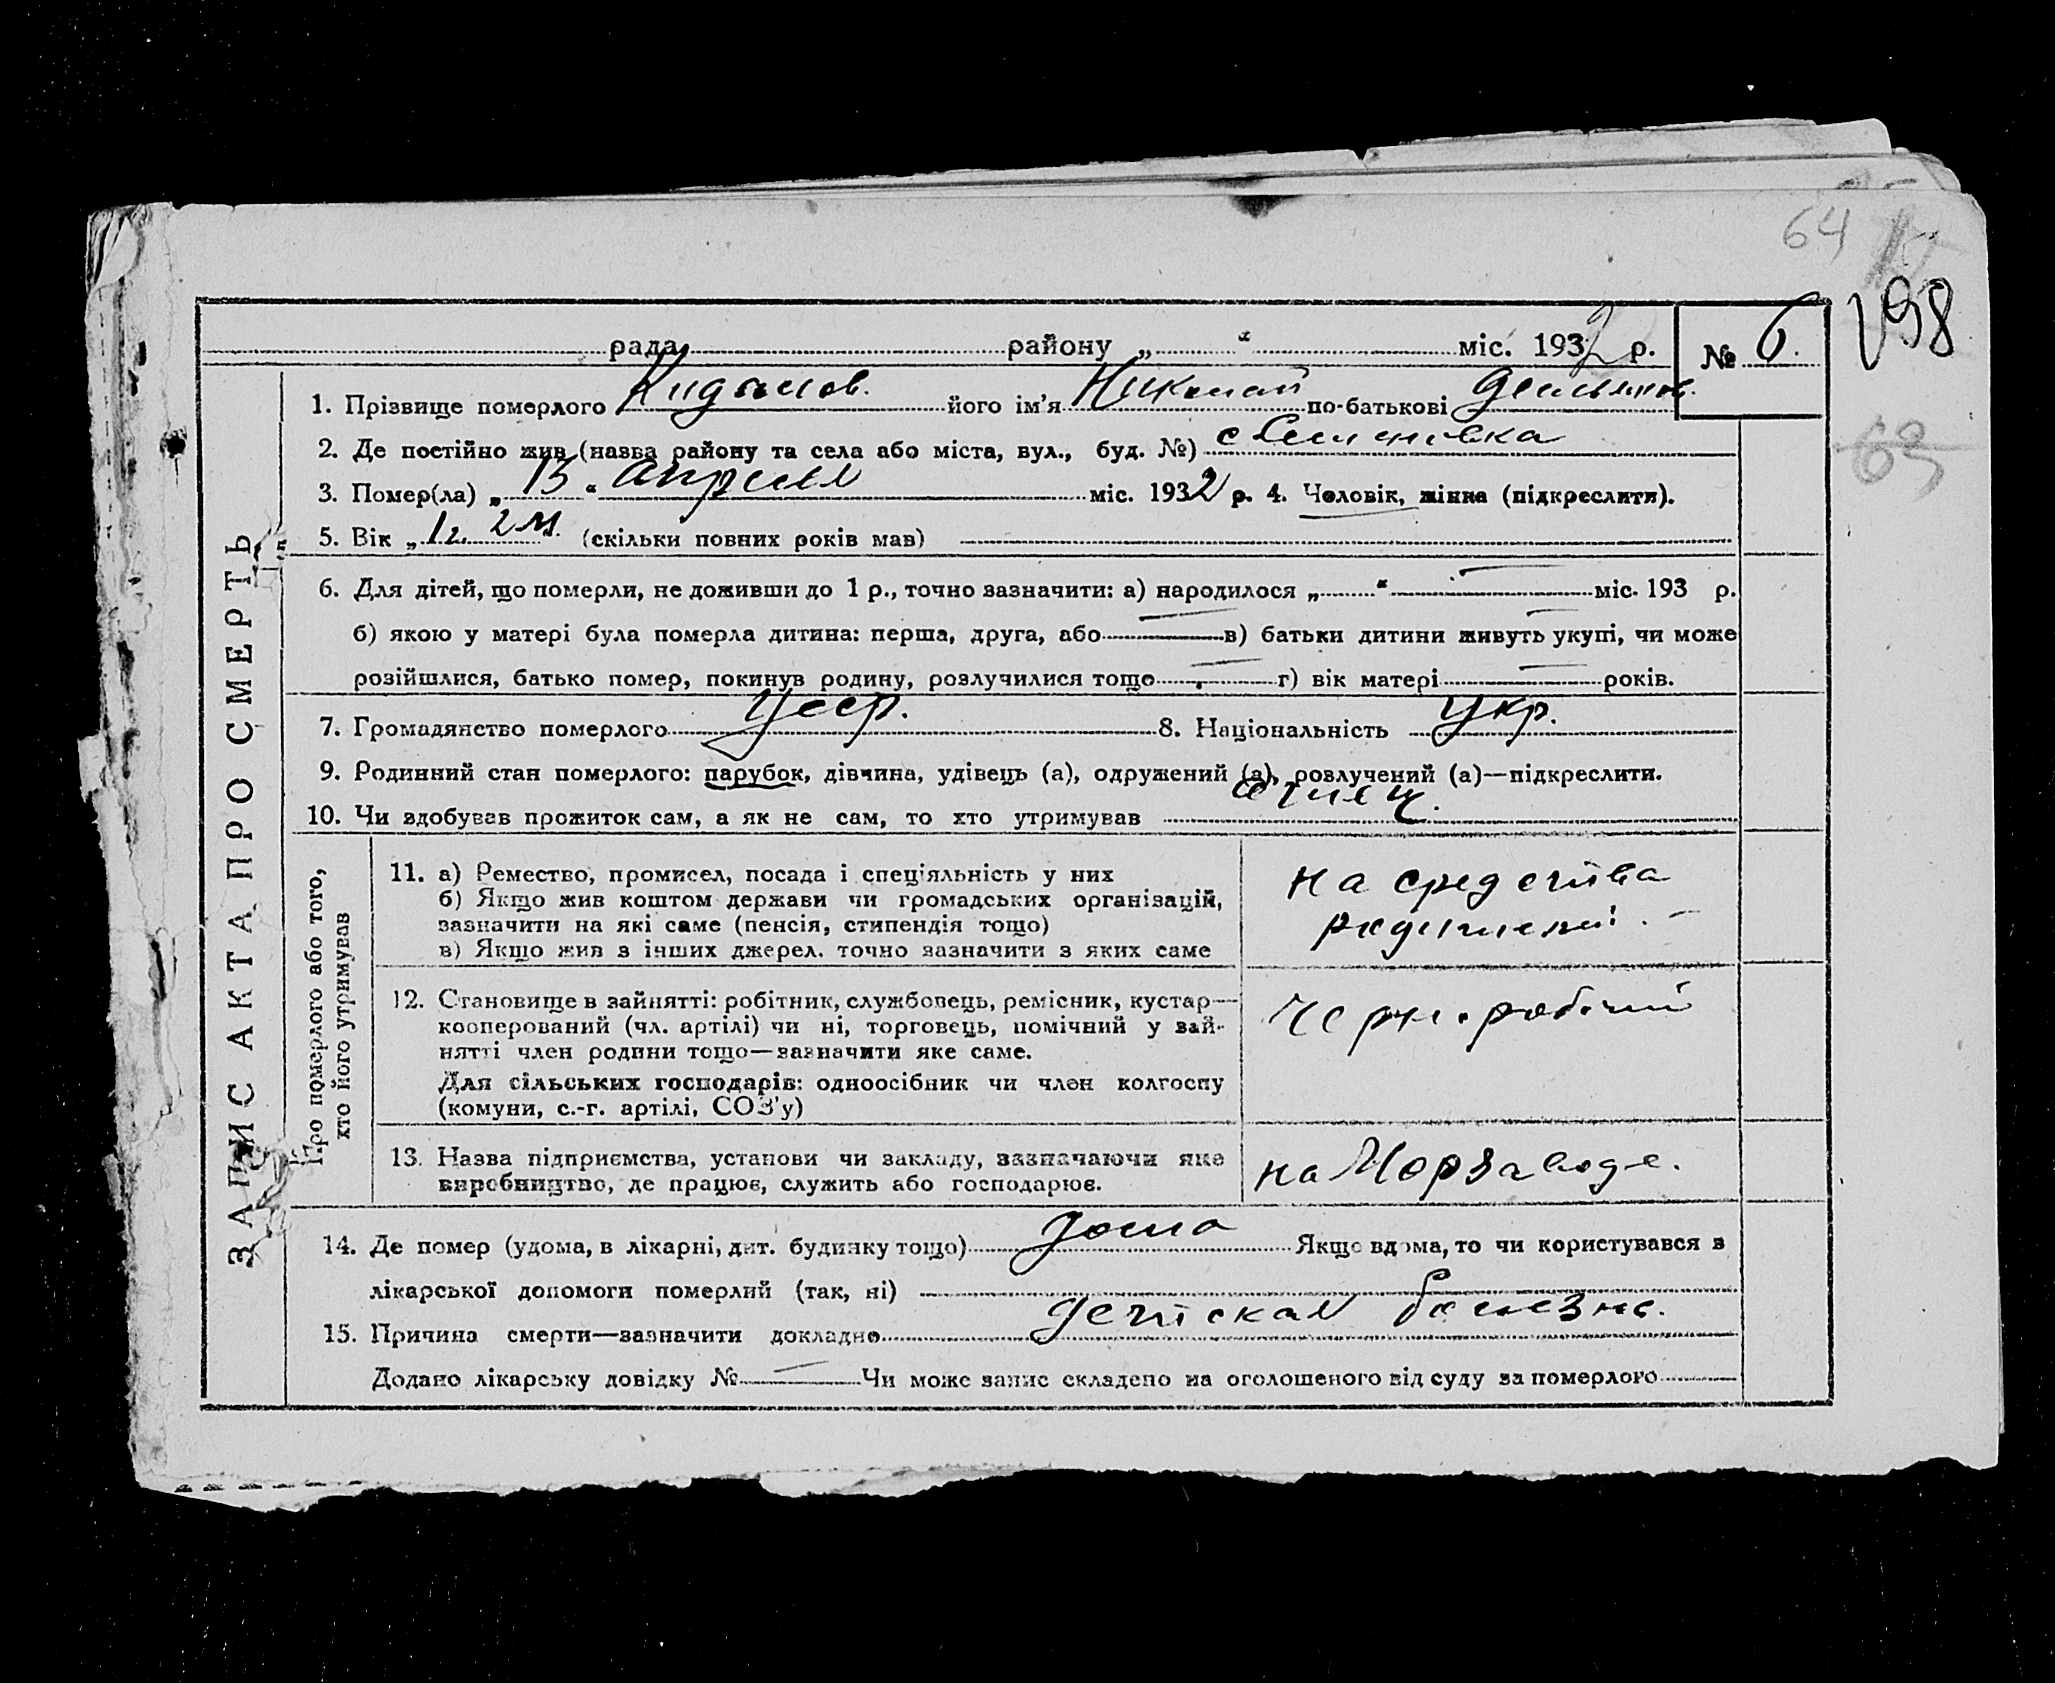 64
198
63
рада районy „ “ міс. 1932 р. № 6.
1. Прізвище померлого його ім'я Николай по-батькові
2. Де постійно жив (назва району та села або міста, вул., буд. №) с Семеновка
3. Помер(ла) „ 13 “ апреля міс. 1932 р. 4. Чоловік, жінка (підкреслити).
5. Вік „ 1 г. 2 м. (скільки повних років мав)
6. Для дітей, що померли, не доживши до 1 р., точно зазначити: а) народилося „ “ — міс. 193 р.
б) якою у матері була померла дитина: перша, друга, або — в) батьки дитини живуть укупі, чи може
розійшлися, батько помер, покинув родину, розлучилися тощо — г) вік матері — років.
7. Громадянство померлого Усср. 8. Національність Укр.
9. Родинний стан померлого: парубок, дівчина, удівець (а), одружений (а), розлучений (а)—підкреслити.
10. Чи здобував прожиток сам, а як не сам, то хто утримував отец.
ЗАПИС АКТА ПРО СМЕРТЬ
Про померлого або того,
хто його утримував
11. а) Ремество, промисел, посада і спеціяльність у них
б) Якщо жив коштом держави чи громадських організацій,
зазначити на які саме (пенсія, стипендія тощо)
в) Якщо жив з інших джерел. точно зазначити з яких саме
на средства
родителей. —
12. Становище в зайнятті: робітник, службовець, ремісник, кустар—
кооперований (чл. артілі) чи ні, торговець, помічний у зай-
нятті член родини тощо—зазначити яке саме.
Для сільських господарів: одноосібник чи член колгоспу
(комуни, с.-г. артілі, СОЗ'у)
черн. робочий
13. Назва підприємства, установи чи закладу, зазначаючи яке
виробництво, де працює, служить або господарює.
на Морзаводе.
14. Де помер (удома, в лікарні, дит. будинку тощо) дома Якщо вдома, то чи користувався з
лікарської допомоги померлий (так, ні)
15. Причина смерти—зазначити докладно детская болезнь.
Додано лікарську довідку № — Чи може запис складено на оголошеного від суду за померлого